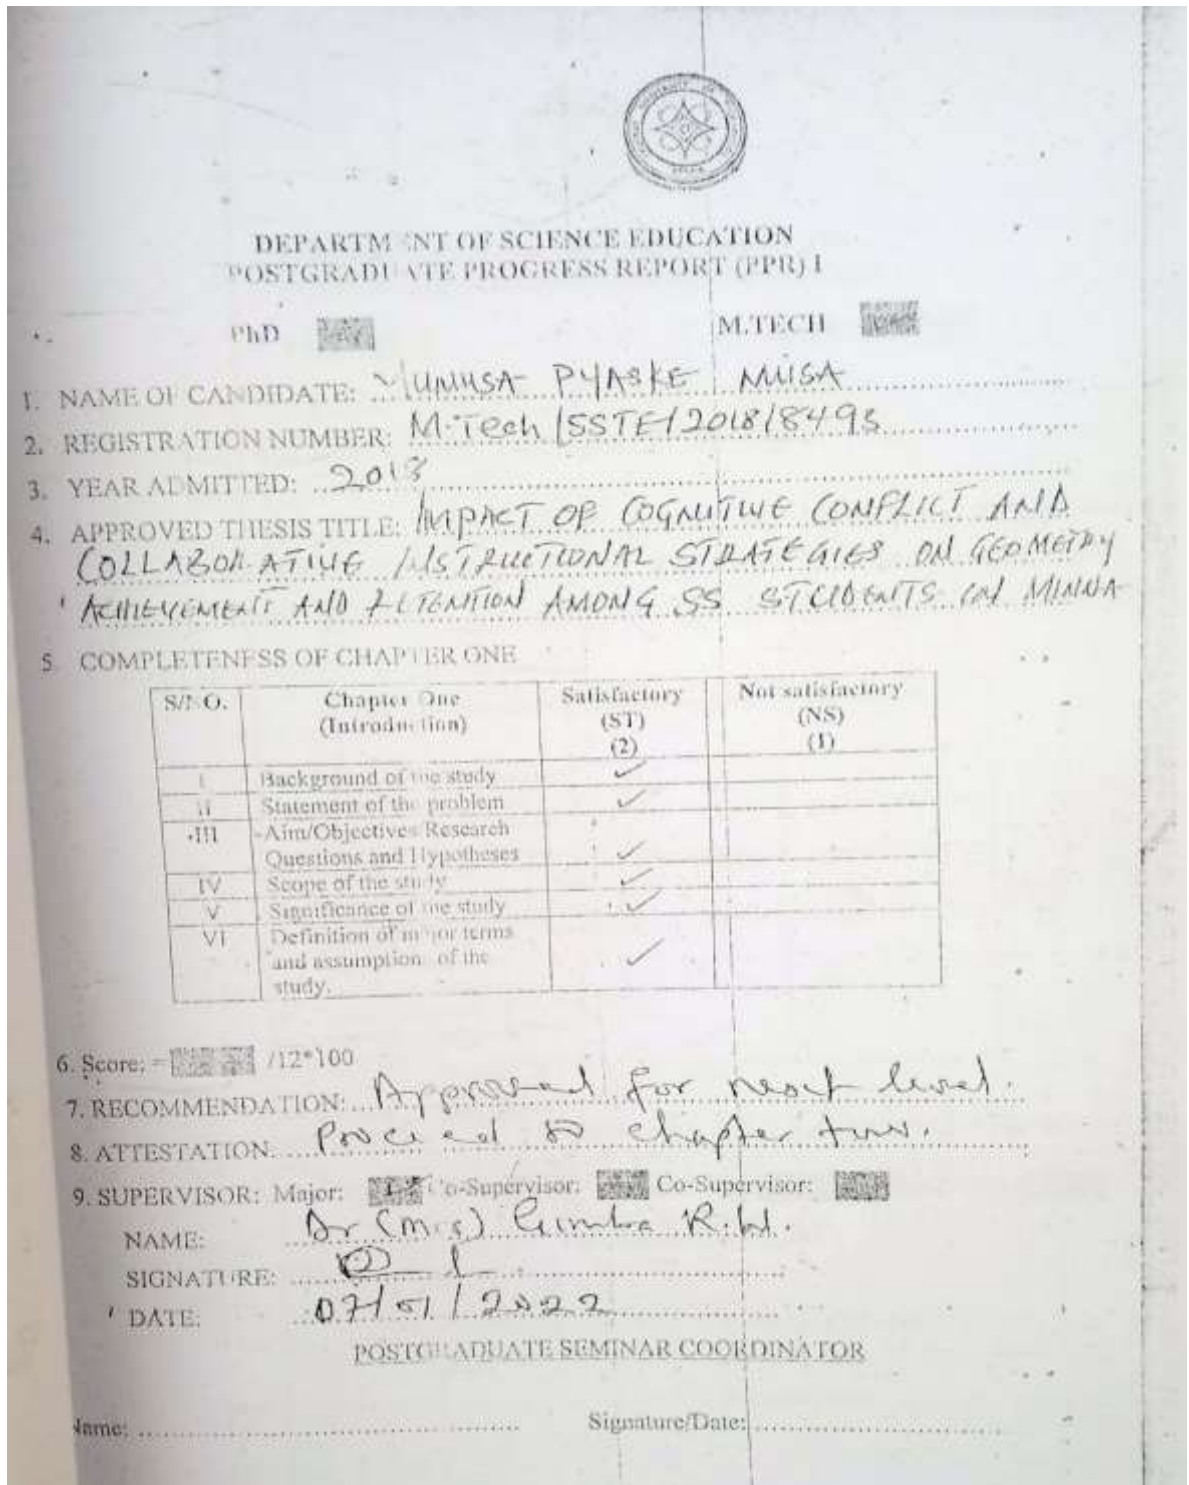 DEPARTMENT OF SCIENCE EDUCATION
POSTGRADUATE PROGRESS REPORT (PPR) I
PhD M.TECH
1. NAME OF CANDIDATE: YUNUSA PYASKE MUSA
2. REGISTRATION NUMBER: M.Tech/SSTE/2018/8493
3. YEAR ADMITTED: 2018
4. APPROVED THESIS TITLE: IMPACT OF COGNITIVE CONFLICT AND
COLLABORATIVE INSTRUCTIONAL STRATEGIES ON GEOMETRY
ACHIEVEMENT AND RETENTION AMONG SS STUDENTS IN MINNA
5. COMPLETENESS OF CHAPTER ONE
S/NO. Chapter One Satisfactory Not satisfactory
(Introduction) (ST) (NS)
(2) (1)
I Background of the study ✓
II Statement of the problem ✓
III Aim/Objectives Research
Questions and Hypotheses ✓
IV Scope of the study ✓
V Significance of the study ✓
VI Definition of major terms
and assumption of the ✓
study.
6. Score: = /12*100
7. RECOMMENDATION: Approved for next level.
8. ATTESTATION: Proceed to chapter two.
9. SUPERVISOR: Major: Co-Supervisor: Co-Supervisor:
NAME: Dr (Mrs) Gimba R.W.
SIGNATURE:
DATE: 07/01/2022
POSTGRADUATE SEMINAR COORDINATOR
Name: Signature/Date: